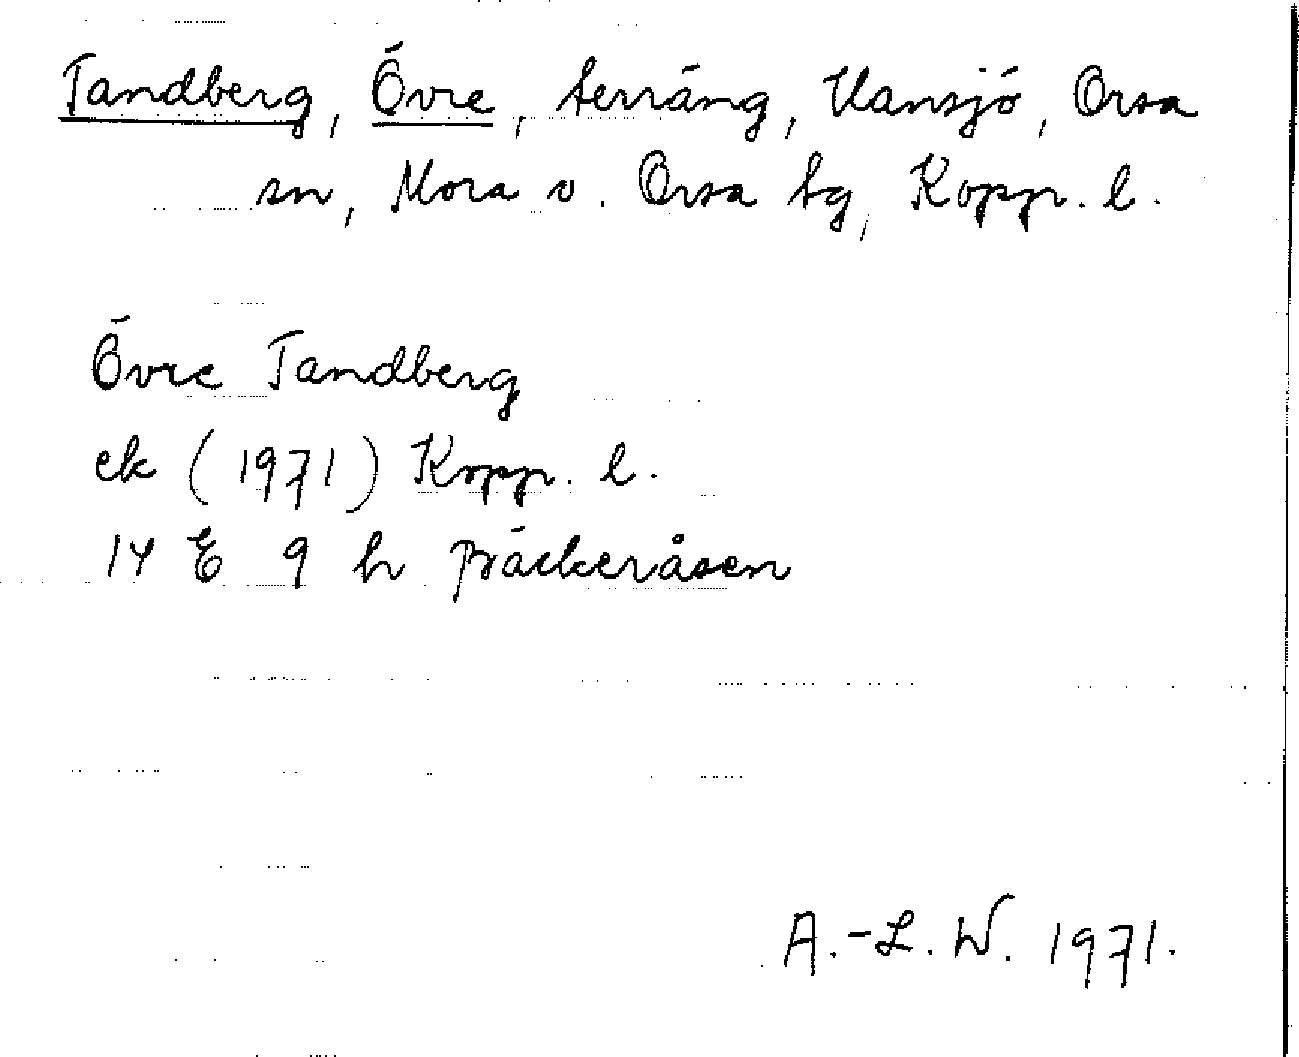 Tandberg, Övre, terräng, Hansjö, Orsa
sn, Mora o. Orsa tg, Kopp. l.
Övre Tandberg
ek (1971) Kopp. l.
14 E 9 h Bäckeråsen
A.-L. W. 1971.